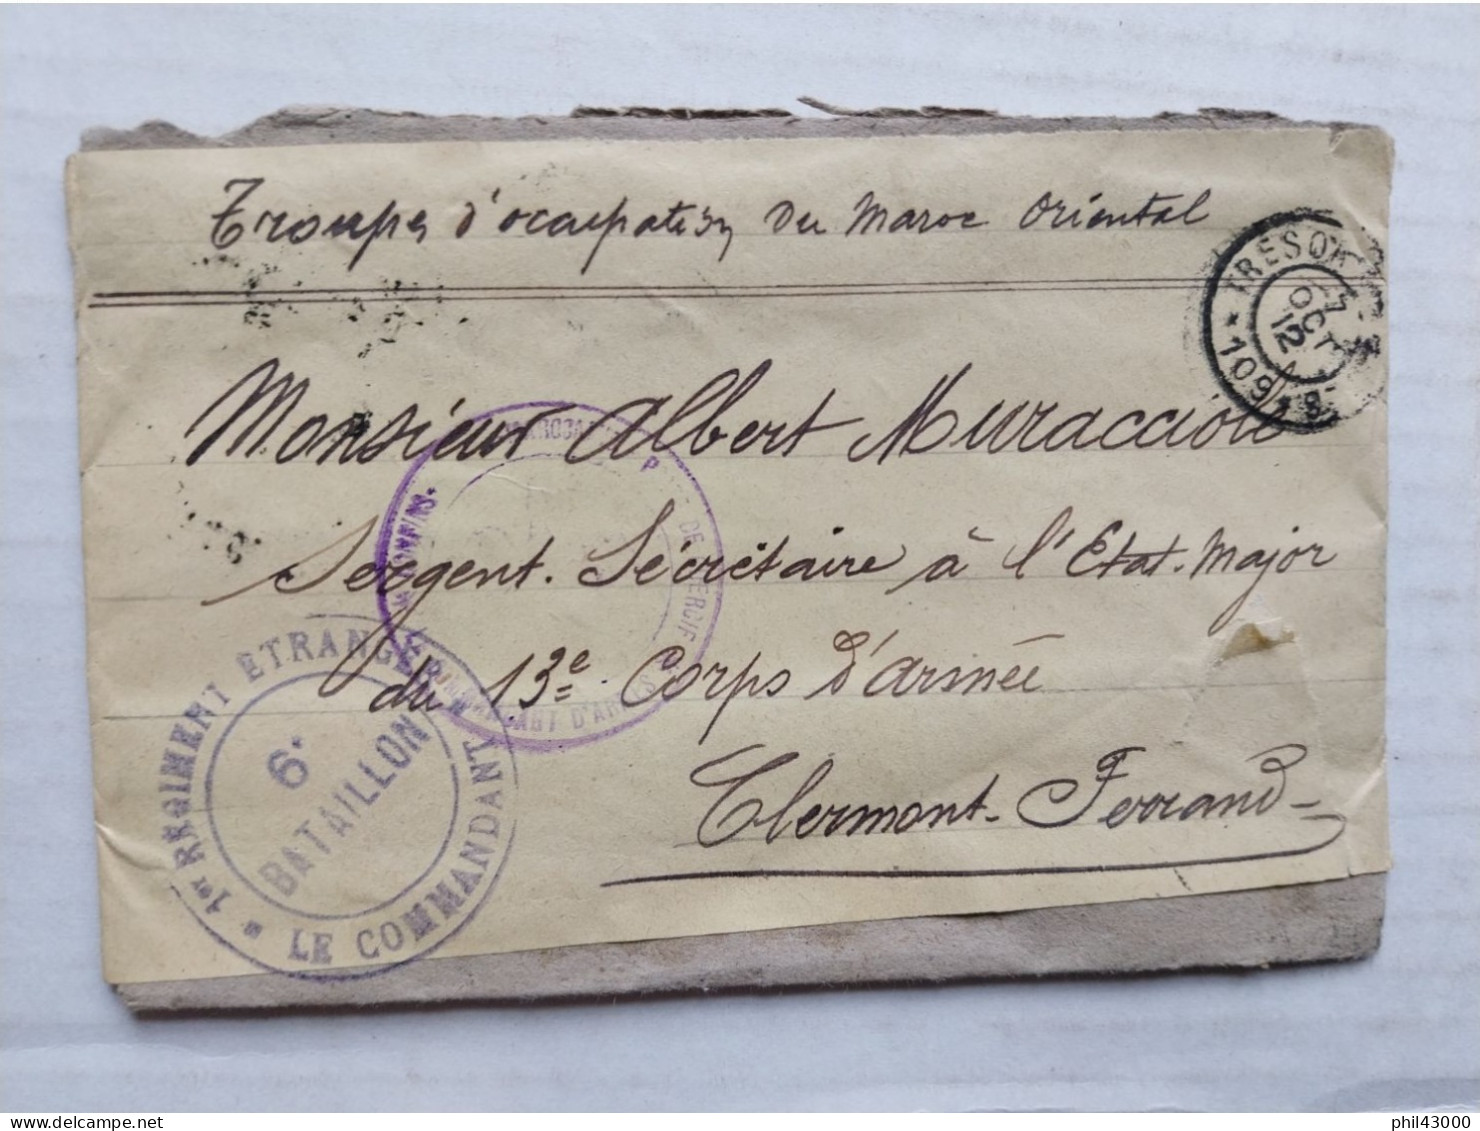 Troupes d'occupation du Maroc Oriental
TRESOR
OCT
12
* 109 *
Monsieur Albert Muraccioli
Sergent. Sécrétaire à l'Etat-Major
du 13e Corps d'armée
Clermont-Ferrand-
DE
D'ARMES
* 1er REGIMENT ETRANGER *
6e
BATAILLON
LE COMMANDANT
phil43000